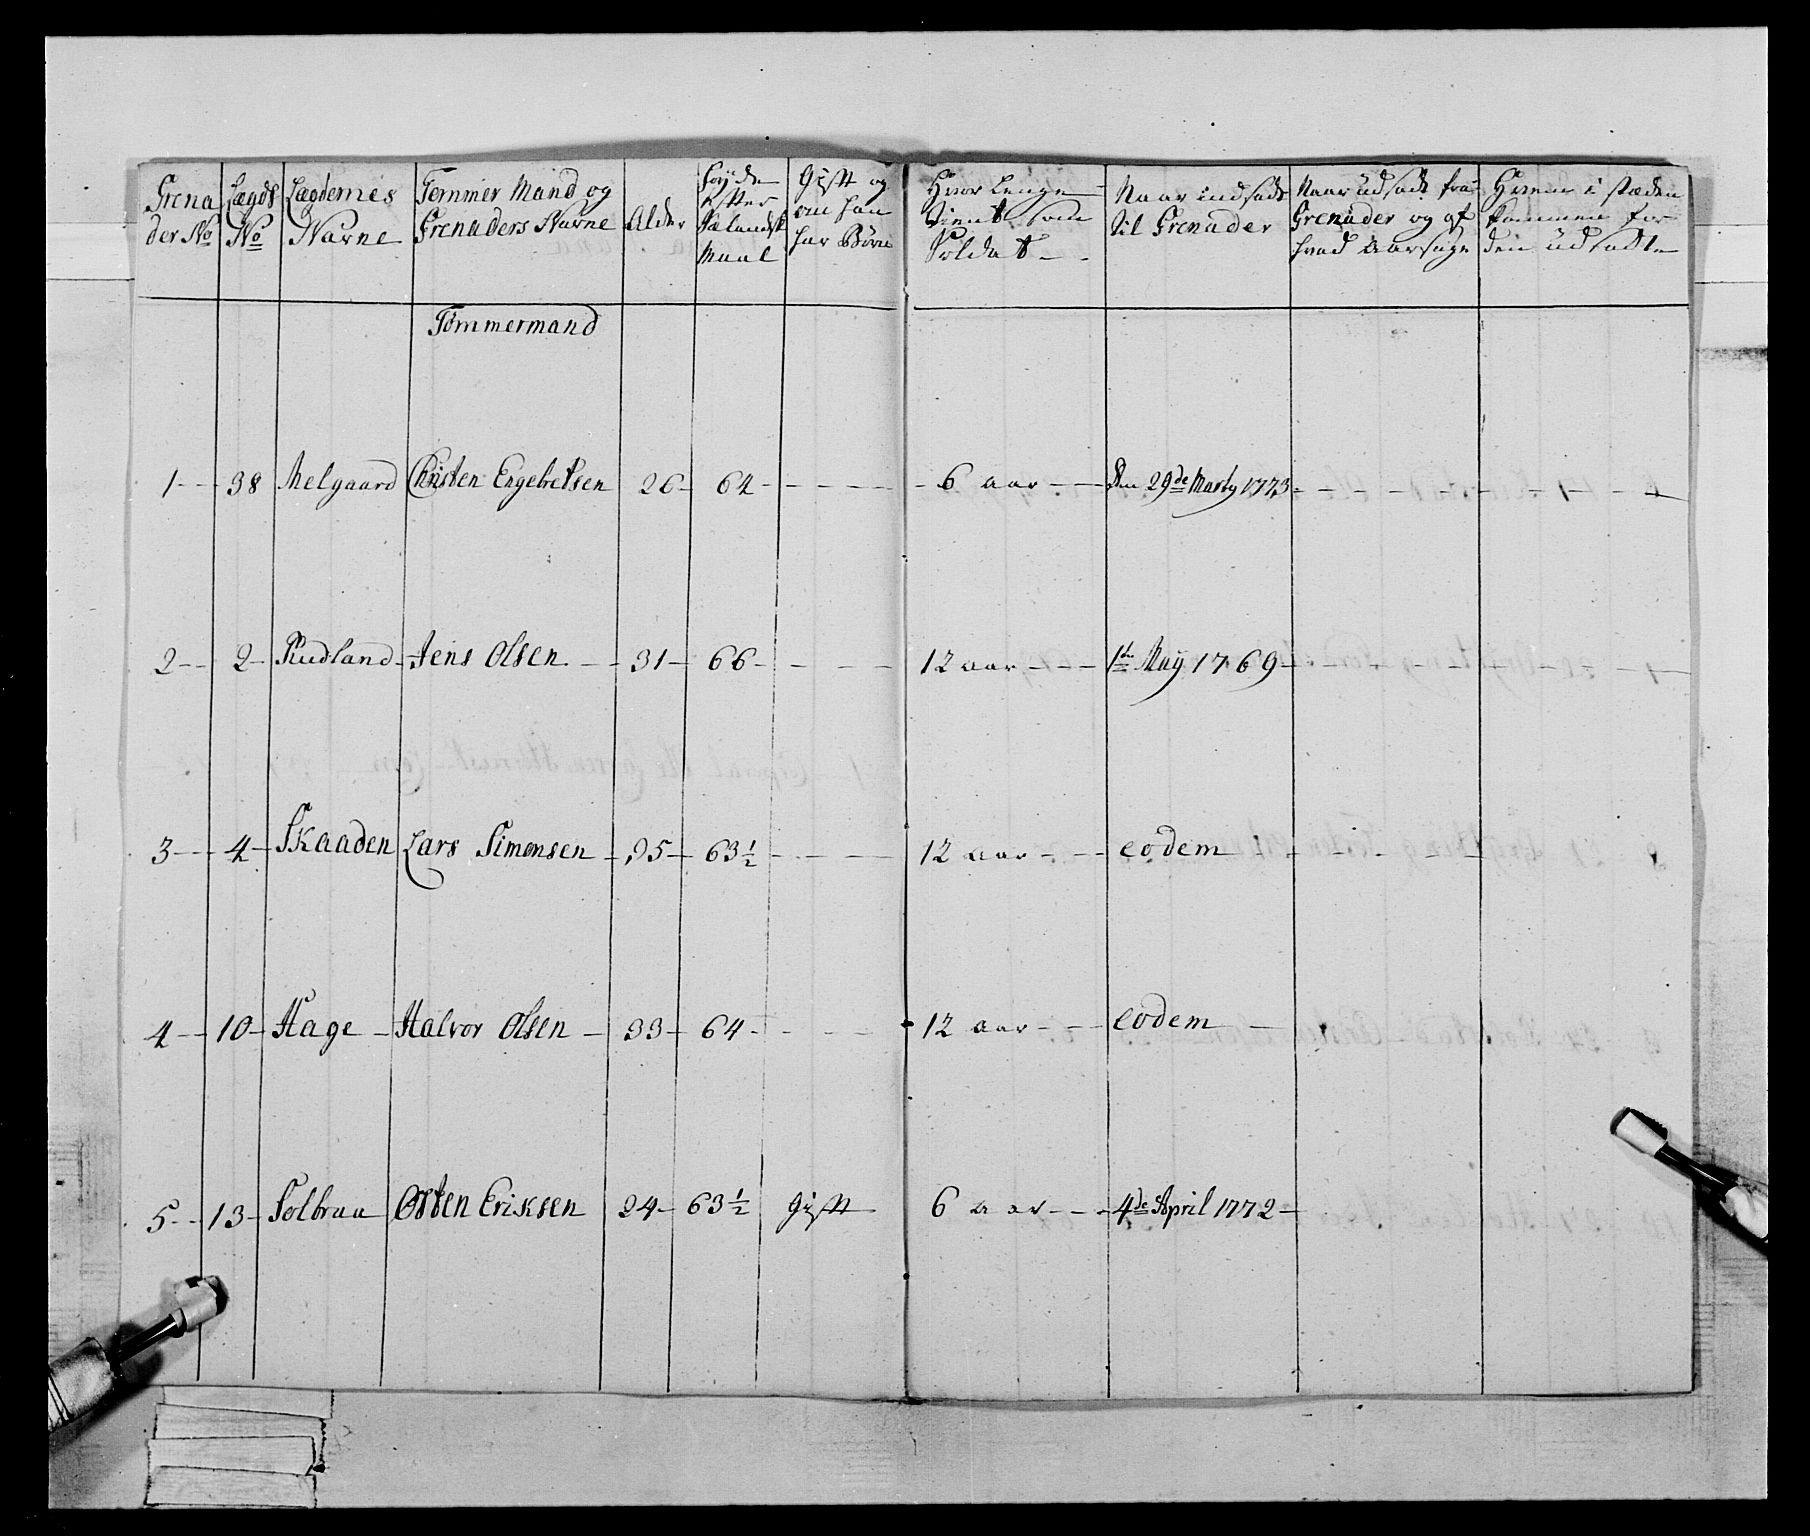 Grena der No | Lægds No | Lægdernes Navne | Tømmer Mand og Grenaders Navne | Alder | Høyde efter Sælandsk Maal | Gift og om han har Børn | Hvor Lenge Tient som Soldat | Naar indsadt til Grenader | Naar udsadt fra Grenader og af hvad Aarsage | Hvem i stæden kommen for den udsadte
Tømmermand
1 - - 38 Melgaard Christen Engebretsen 26 - 64 - - - - - 6 aar - - Den 29de Marty 1773 - - - -
2 - - 2 - Rudland - Jens Olsen - - 31 - 66 - - - - 12 aar - - - 1te May 1769 - - - -
3 - - 4 - Skaaden Lars Simensen - 35 - 63½ - - - - 12 aar - - - eodem - - - -
4 - - 10 - Hage - Halvor Olsen - 33 - 64 - - - - 12 aar - - - eodem -
5 - - 13 - Solbraa Østen Eriksen 24 - 63½ Gift 6 aar - - - 4de April 1772 -